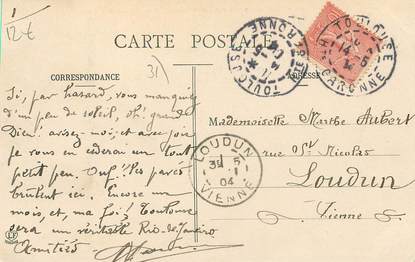 1
12€
31
CARTE POSTALE
CORRESPONDANCE
ADRESSE
Si, par hasard, vous manquiez
d'un peu de soleil, oh! grand
Dieu! avisez-moi, et avec joie
je vous en céderai un tout
petit peu. Ouf!! Les pavés
brûlent ici. Encore un
mois, et, ma foi! Toulouse
sera un véritable Rio-de-Janeiro
Amitiés
Mademoiselle Marthe Aubert
rue St Nicolas
Loudun
Vienne
LOUDUN
31 5
04
VIENNE
TOULOUSE
HTE GARONNE
TOULOUSE
GARONNE